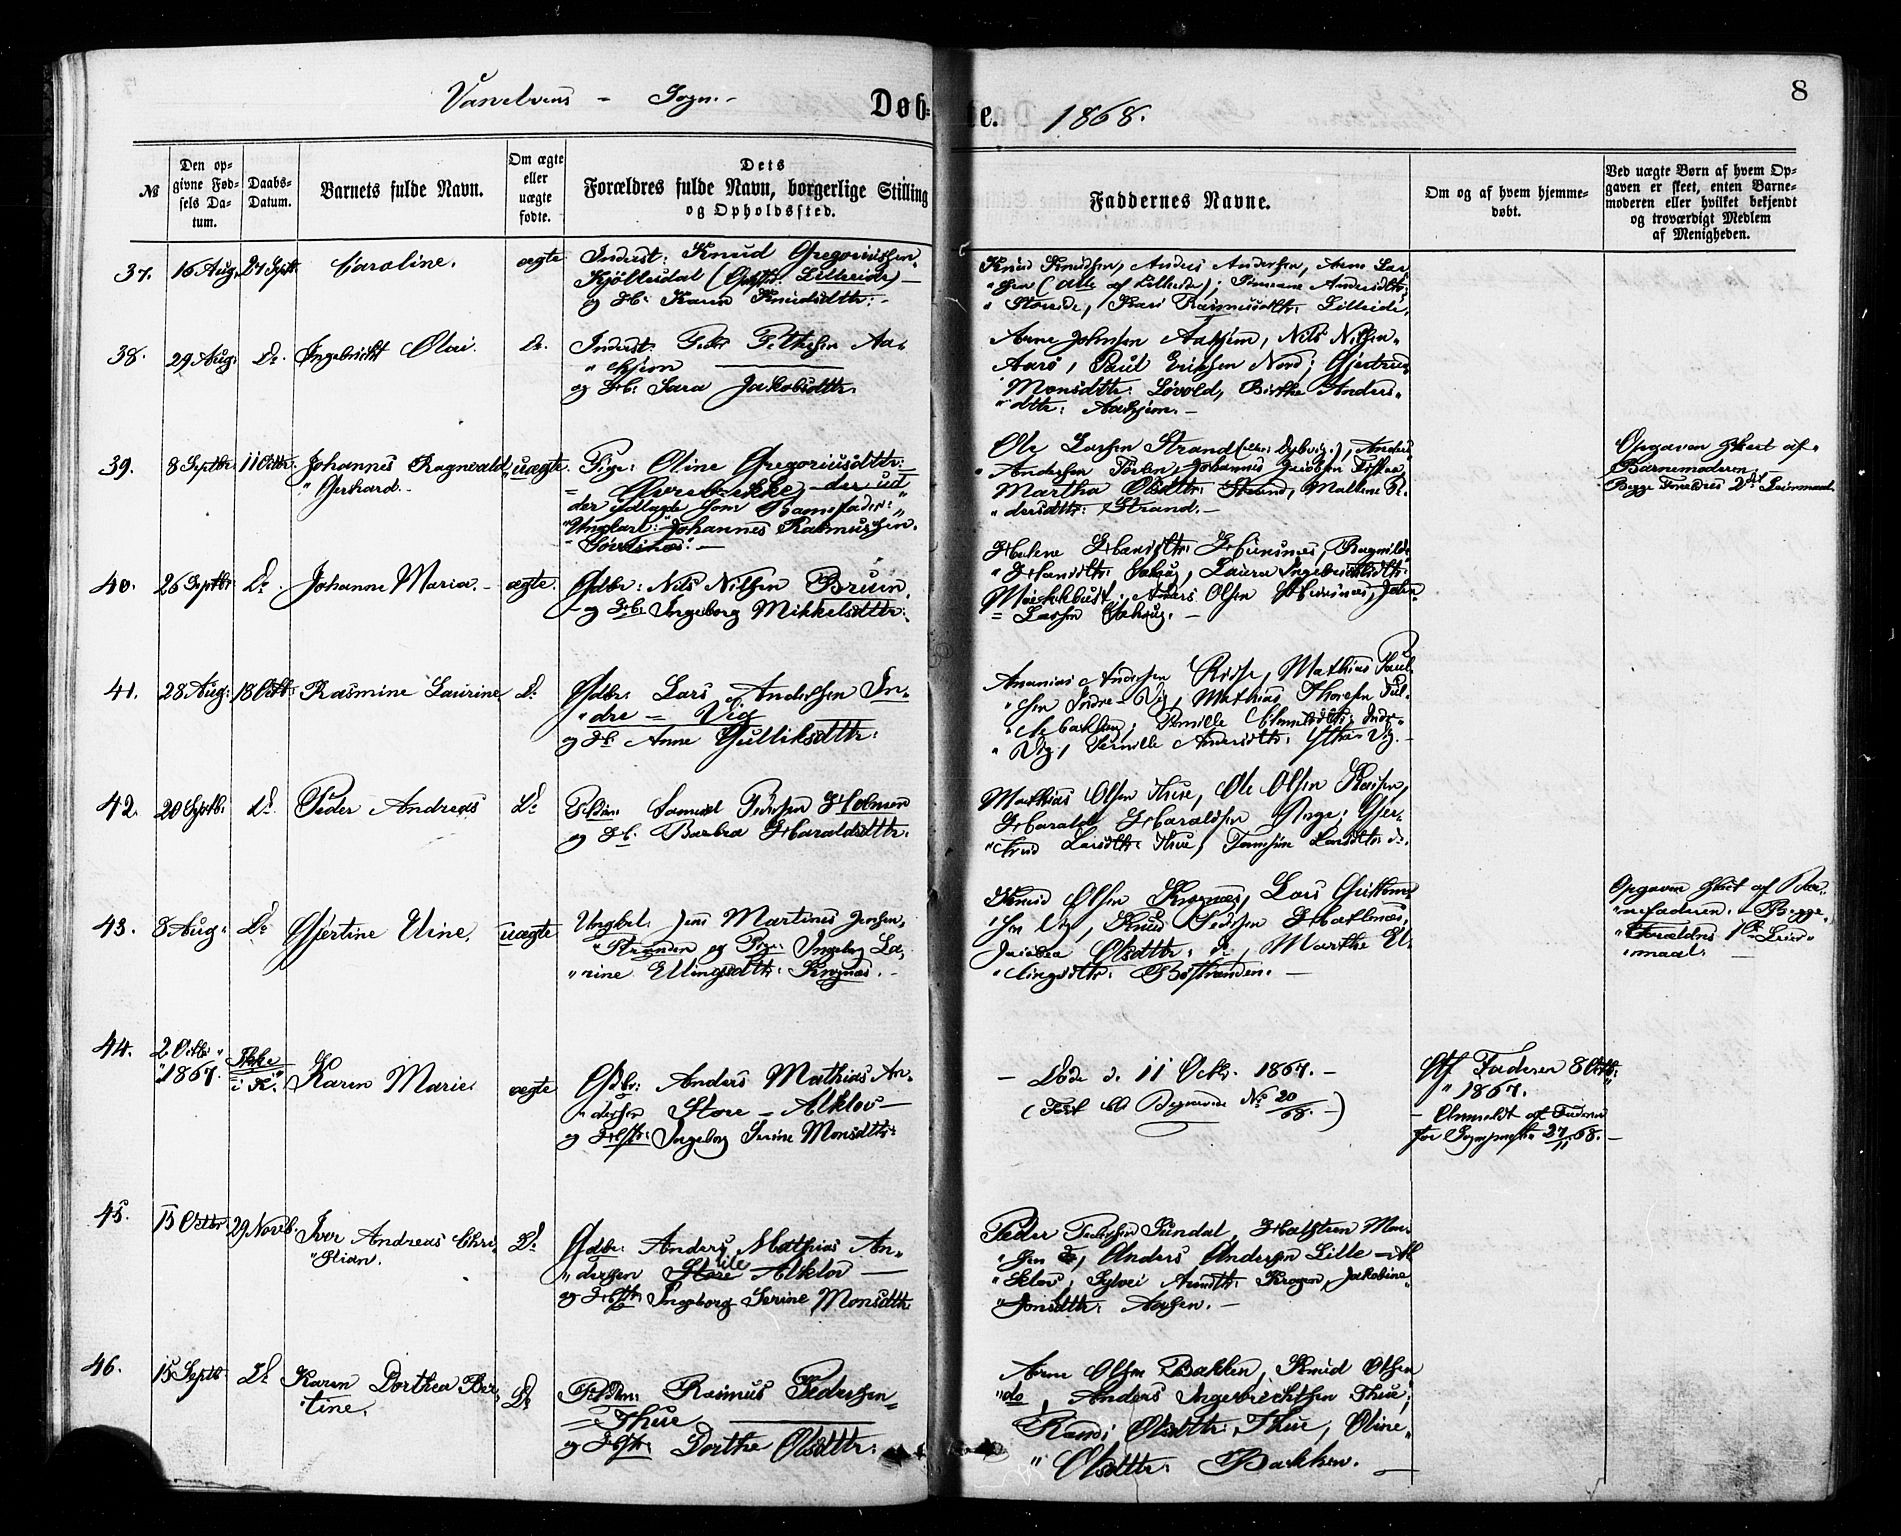 Vanelvens - Sogn -
Døbte. 1868.
8
№
Den opgivne Fødsels Datum.
Daabs-Datum.
Barnets fulde Navn.
Om ægte eller uægte fødte.
Dets
Forældres fulde Navn, borgerlige Stilling
og Opholdssted.
Faddernes Navne.
Om og af hvem hjemme-
døbt.
Ved uægte Børn af hvem Op-
gaven er skeet, enten Barne-
moderen eller hvilket bekjendt
og troværdigt Medlem
af Menigheden.
37. 16 Aug: 27 Septb: Caroline. ægte Inderst: Knud Gregoriussen
Kjøllesdal (Lilleeide) -
og Hb: Karen Knudsdttr: -
Knud Knudsen, Anders Andersen, Arne Lar-
"sen (Alle af Lilleeide); Andersdttr:
" Storeide, Kari Rasmusdttr: Lilleeide.
38. 29 Aug: Do. Ingebrickt Olai. Do. Inderst: Peder Aa-
" hjem
og Hb: Sara Jakobsdttr.
Arne Johnsen Aahjem, Nils Nilsen
Aars, Paul Eriksen Nord; Gjertrud
Monsdttr: Løvold, Birthe Anders-
"dttr: Aahjem. -
39. 8 Septbr: 11 Octbr: Johannes Ragnvald
" Gerhard. -
uægte. Pige: Oline Gregoriusdttr:
= Øvrebrekke, der ud
der udlagde som Barnefader:
"Ungkarl: Johannes Rasmussen
-
Ole Larsen Strand, Anders
" Andersen, Johannes Jacobsen
Martha Olsdttr: Strand, Malene Pe-
" dersdttr: Strand. -
Opgaven skeet af
Barnemoderen;
Begge Forældres 2det Leiermaal
40. 26 Septbr: Do. Johanne Maria. - ægte. Gdbr: Nils Nilsen Bruun
- og Hb: Ingeborg Mikkelsdttr:
Helene Hansdttr:, Ragnilde
" Hansdttr: Sakrug, Laura Ingebrictsdttr:
Mækkbust; Anders Olsen, John
= Larsen Sakrug. -
41. 28 Aug: 18 Octbr: Rasmine Laurine Do. Gdbr: Lars Andersen In-
" dre = Vig
og Hb: Anne Gulliksdttr:
Ananias Andersen, Mathias Paul-
" sen Indre-Vig, Mathias Thoresen
", Pernille Indre-
" Vig, Pernille Andersdttr: Ytre Vig.
42. 20 Septb: Do. Peder Andreas Do Samuel Pedersen Holmen
og Hb: Barbra Haraldsdttr:
Mathias Olsen Thue, Ole Olsen,
Harald Haraldsen; Gjer-
"trud Larsdttr: Thue, Larsdttr: do.
43. 8 Aug: Do Gjertine Eline. uægte Ungkrl. Jens Martinus Jensen
" Stranden og Pige: Ingeborg La-
" rine Ellingsdttr: Krognæs. -
Knud Olsen Krognæs, Lars
"sen Vig, Knud Pedersen
Jacobea Olsdttr: do, Marthe El-
" lingsdttr: -
Opgaven skeet af Bar-
"nefaderen. - Begge
" Forældres 1ste Leier-
" maal.
44. 2 Octbr
" 1867. Ikke
i K: Karen Marie. ægte Gdbr: Anders Mathias An-
" dersen Store - Alklov -
og Hstr: Ingeborg Serine Monsdttr:
- Døde d. 11 Octbr. 1867. -
( Begravede No 20/68. - )
Af Faderen 8 Octb:
" 1867.
- Anmeldt af Faderen
for Sognepræsten 27/11 68. -
45. 15 Octbr: 29 Novb. Iver Andreas Chri-
" stian. Do Gdbr: Anders Mathias An-
" dersen Store Lille Alklov -
og Hstr: Ingeborg Serine Monsdttr:
Peder Pedersen Sundal, Halsteen Mon-
"sen do, Anders Andersen Lille - Al
" klov, Sylvei Krogen, Jakobine
" Jonsdttr: Aasen. -
46. 15 Septb: Do Karen Dorthea Ber-
" tine. Do Rasmus Pedersen
= Thue
og Hstr: Dorthe Olsdttr:
Arne Olsen Bakken, Knud Olsen
" do, Anders Ingebrichtsen Thue;
Randi Olsdttr: Thue, Oline
" Olsdttr: Bakken. -